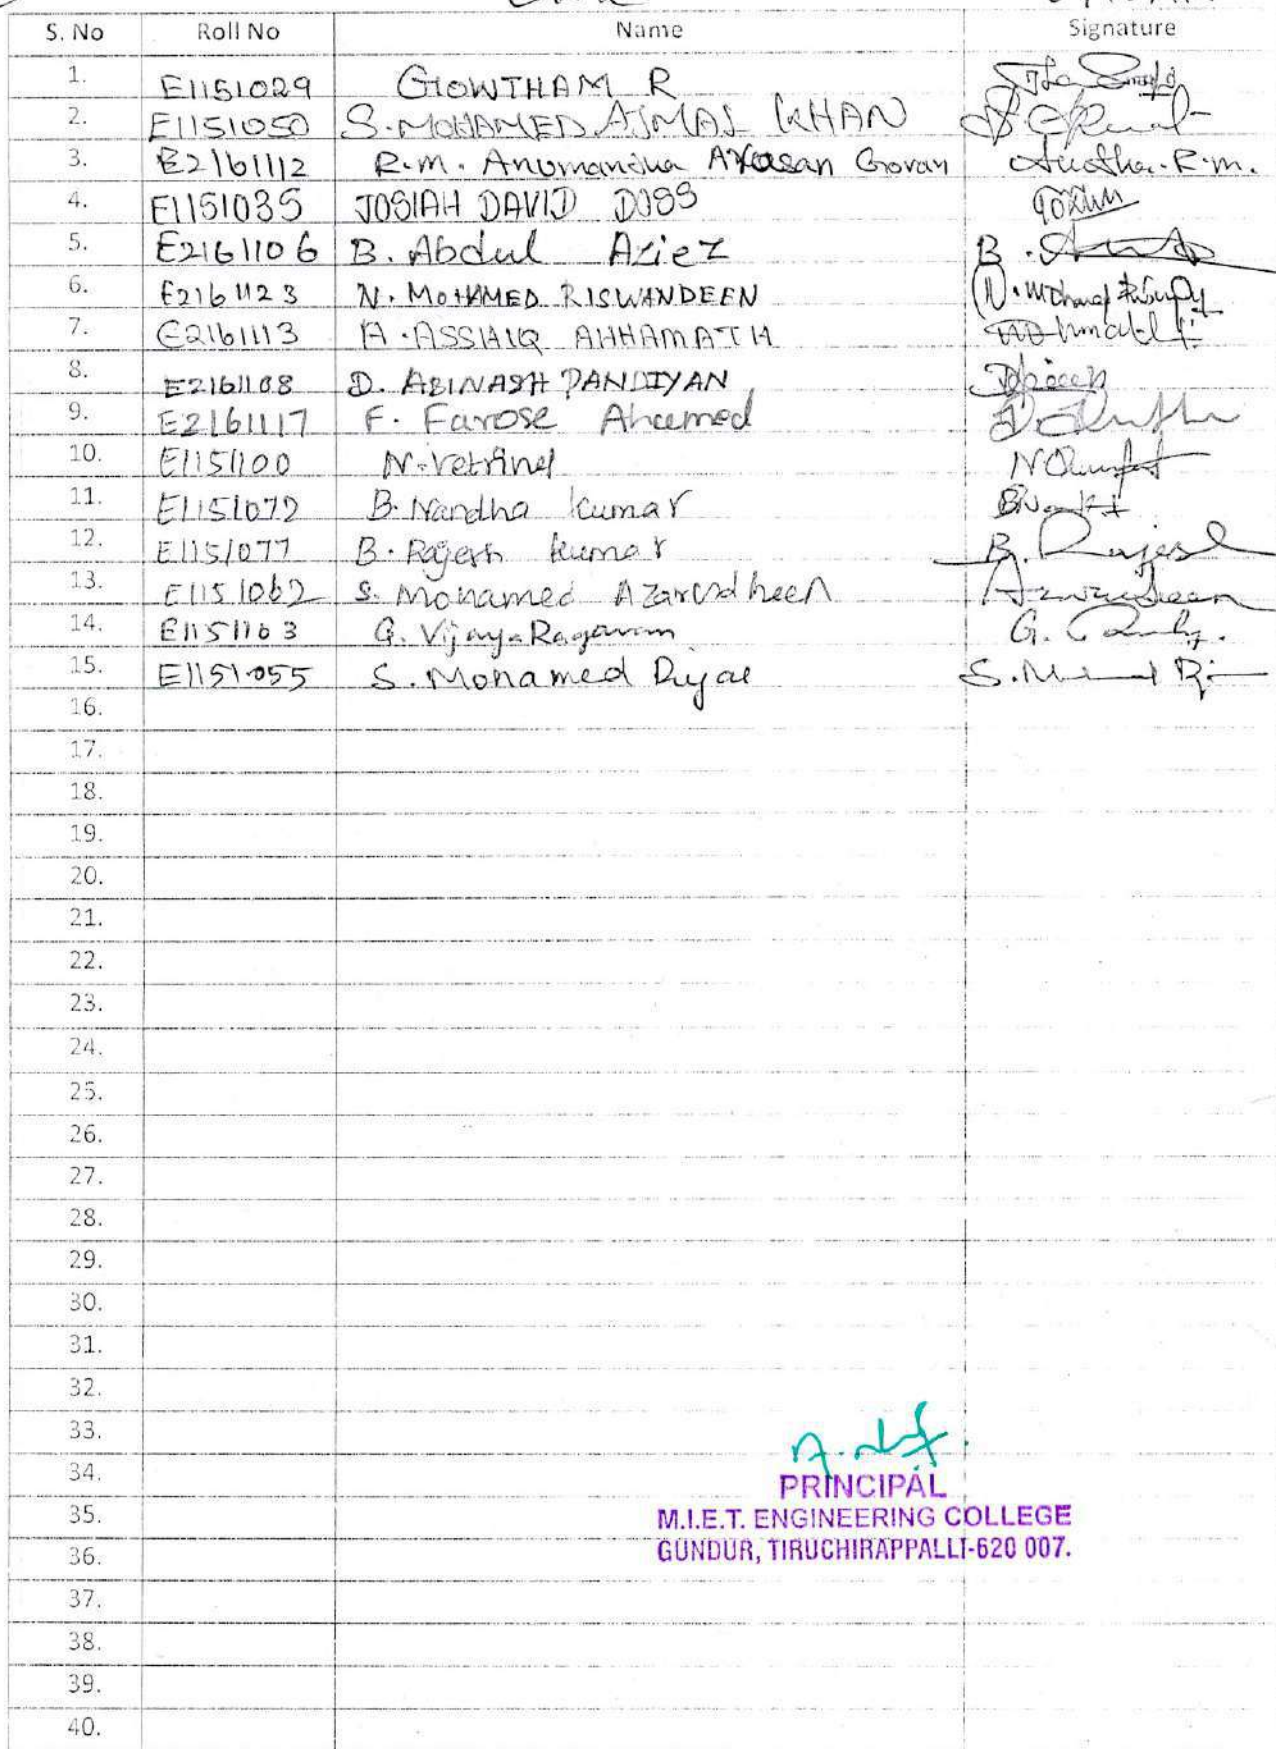 S. No Roll No Name Signature
1. E1151029 GOWTHAM R
2. E1151050 S. MOHAMED AJMAL KHAN
3. E2161112 R.M. Govan R.M.
4. E1151035 JOSIAH DAVID DOSS
5. E2161106 B. Abdul Aziez B.
6. E2161123 N. MOHAMED RISWANDEEN N.
7. E2161113 A. ASSHIQ AHHAMATH
8. E2161108 D. ABINASH PANDIYAN
9. E2161117 F. Farose Aheemed
10. E1151100 N. Vetrivel
11. E1151072 B. Nandha kumar
12. E1151077 B. Rajesh kumar B. Rajesh
13. E1151062 S. Mohamed Azarudheen Azarudheen
14. E1151103 G. Vijaya Ragavan G.
15. E1151055 S. Mohamed S.
16.
17.
18.
19.
20.
21.
22.
23.
24.
25.
26.
27.
28.
29.
30.
31.
32.
33.
34. PRINCIPAL
35. M.I.E.T. ENGINEERING COLLEGE
36. GUNDUR, TIRUCHIRAPPALLI-620 007.
37.
38.
39.
40.